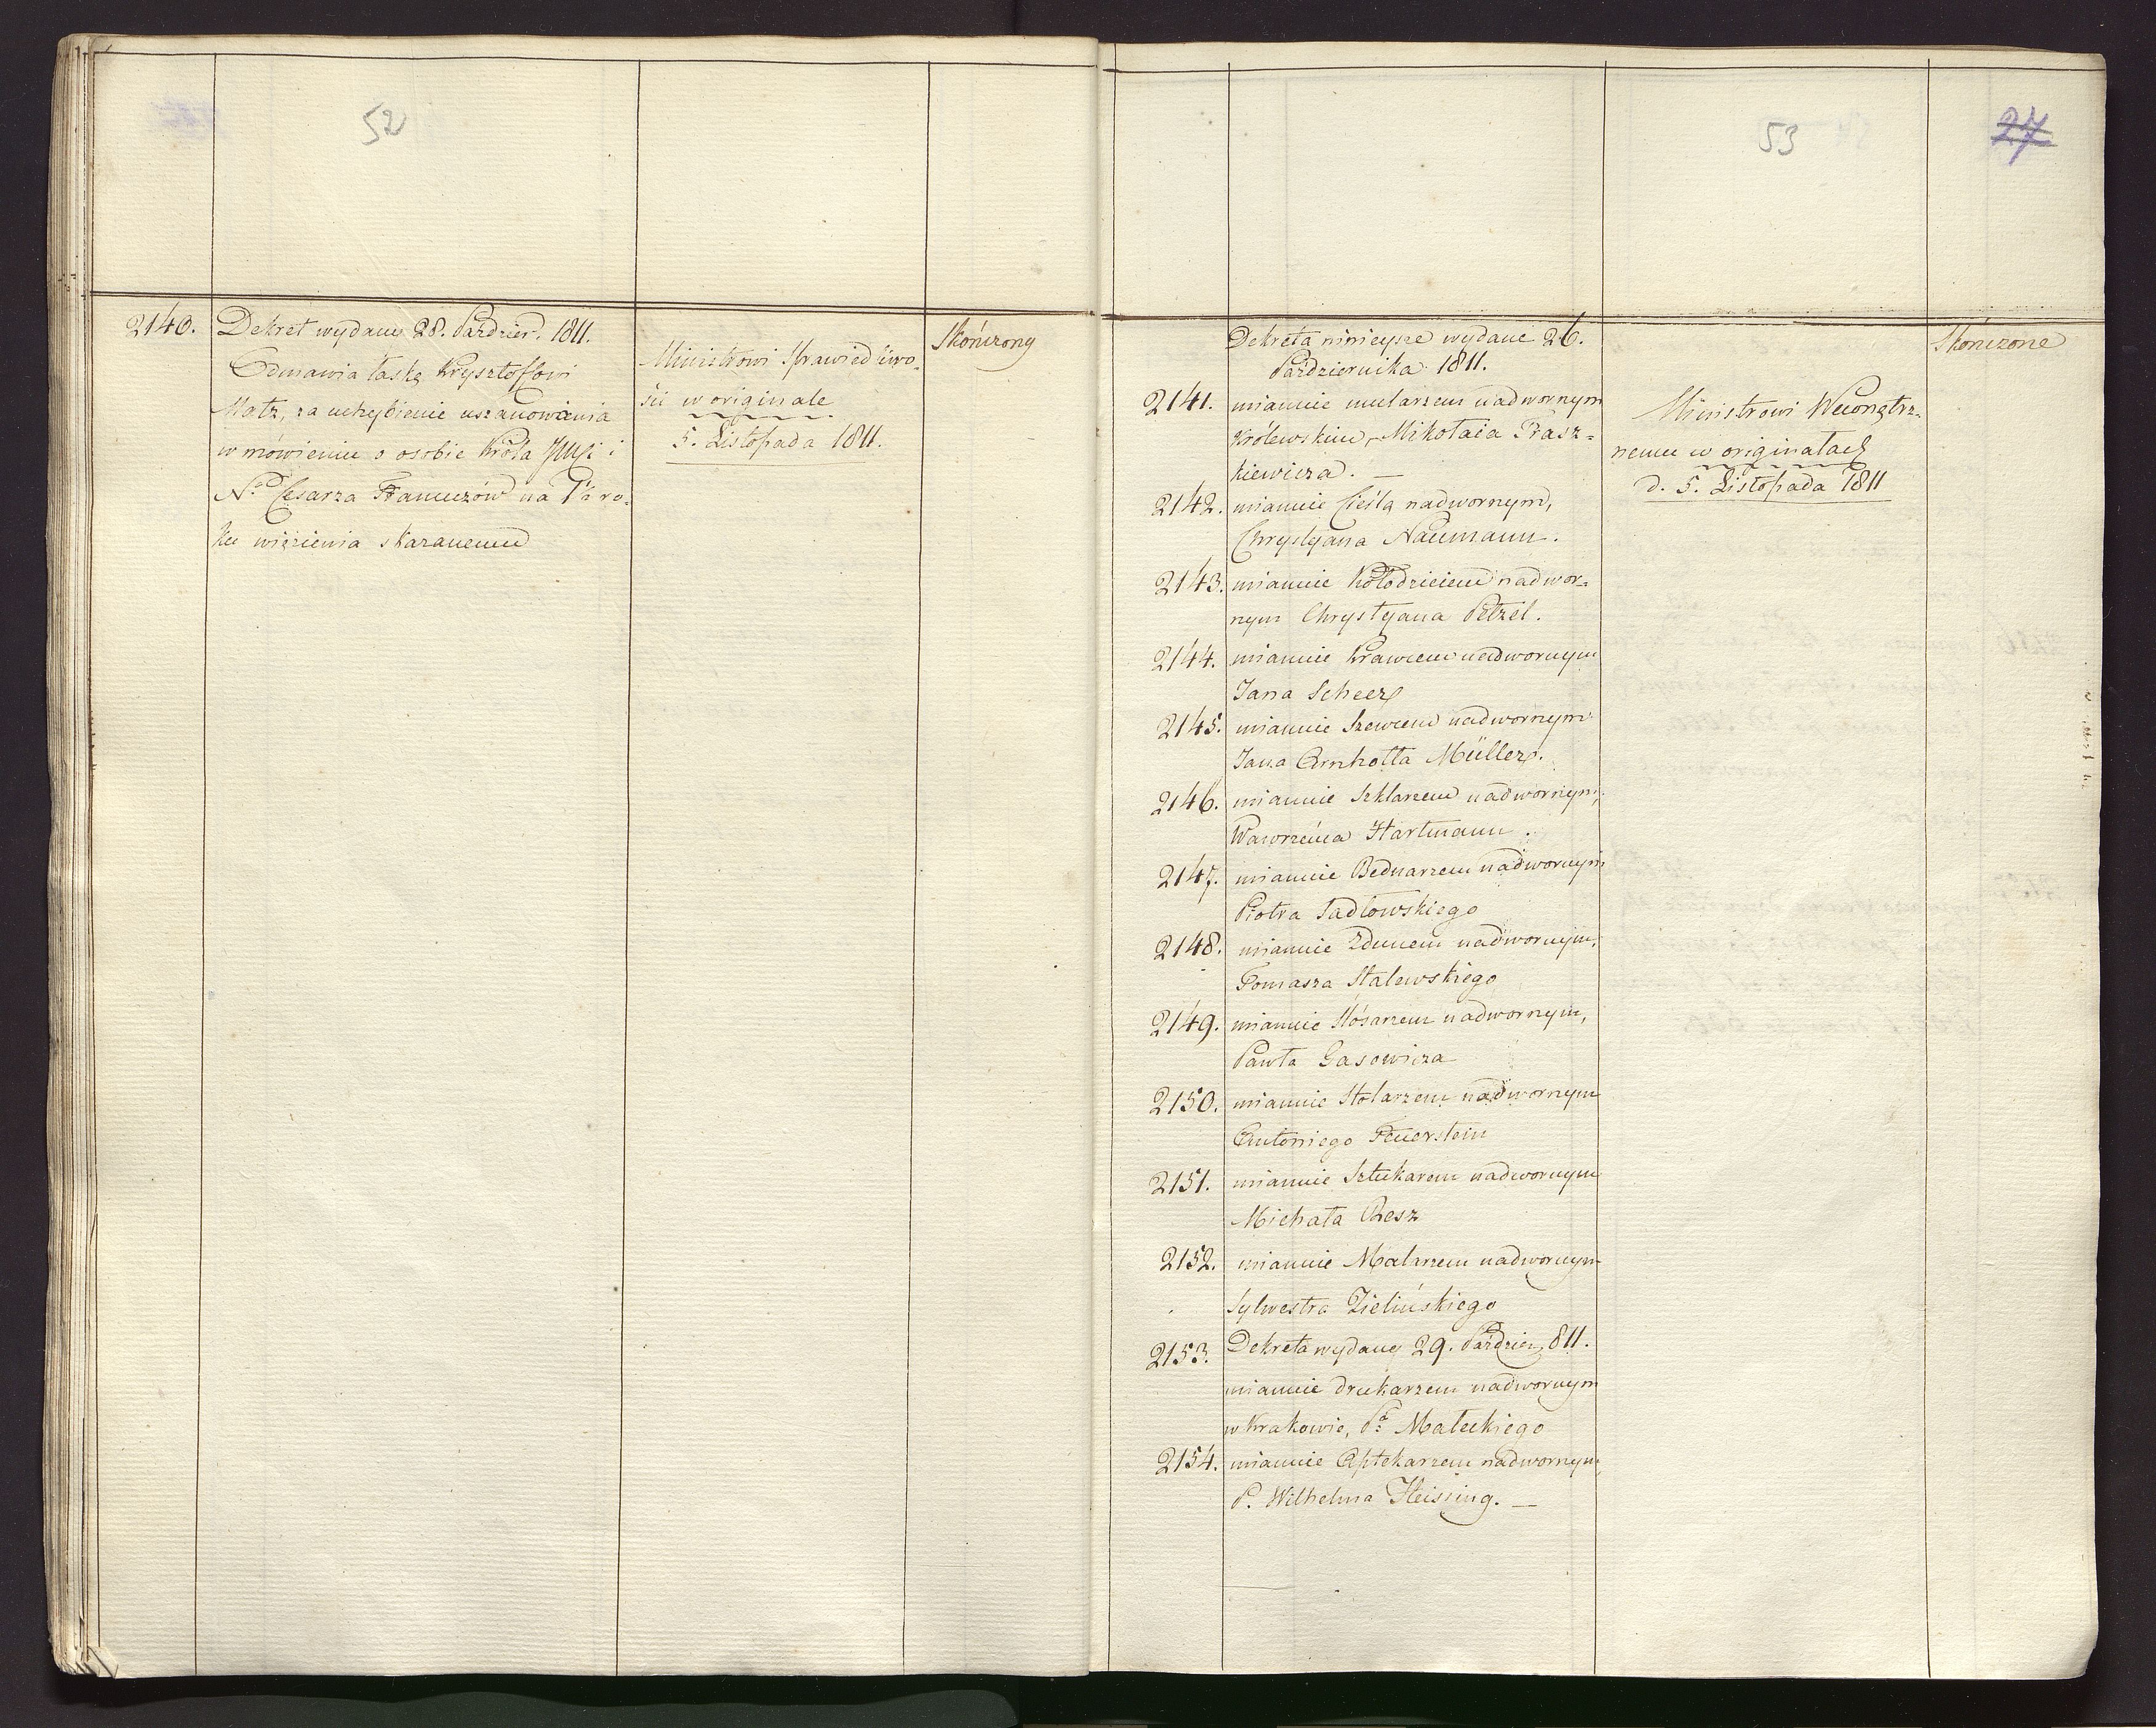 52
2140.
Dekret wydany 28. Paździer. 1811.
Odmawia łaskę Krysztoffowi
Matz, za uchybienie uszanowania
w mówieniu o osobie Króla i
N. Cesarza Francuzów na ro-
ku więzienia skazanemu
Ministrowi Sprawiedliwo-
ści w originale
5. Listopada 1811.
Skończony
53
27
Dekreta ninieysze wydane 26.
Października 1811.
2141. mianuie mularzem nadwornym
Królewskim, Mikołaia Prasz=
kiewicza. —
2142. mianuie Cieślą nadwornym,
Chrystyana Naumann.
2143. mianuie Kołodzieiem nadwor=
nym Chrystyana Petzel.
2144. mianuie Krawcem nadwornym
Jana Scheer
2145. mianuie Szewcem nadwornym
Jana Arnholta Müller.
2146. mianuie Szklarzem nadwornym,
Wawrzeńca Hartmann.
2147. mianuie Bednarzem nadwornym
Piotra Sadłowskiego
2148. mianuie Zdunem nadwornym,
Tomasza Stalewskiego
2149. mianuie Slósarzem nadwornym,
Pawła Gasowicza
2150. mianuie Stolarzem nadwornym
Antoniego Feuerstein
2151. mianuie Sztukarem nadwornym
Michała Resz
2152. mianuie Malarzem nadwornym
Sylwestra Zielińskiego
2153. Dekreta wydany 29. Paździer. 811.
mianuie drukarzem nadwornym
w Krakowie, Pa Małeckiego
2154. mianuie Aptekarzem nadwornym,
P. Wilhelma Heissing. —
Ministrowi Wewnętrz-
nemu w originałach
d. 5. Listopada 1811
Skończone